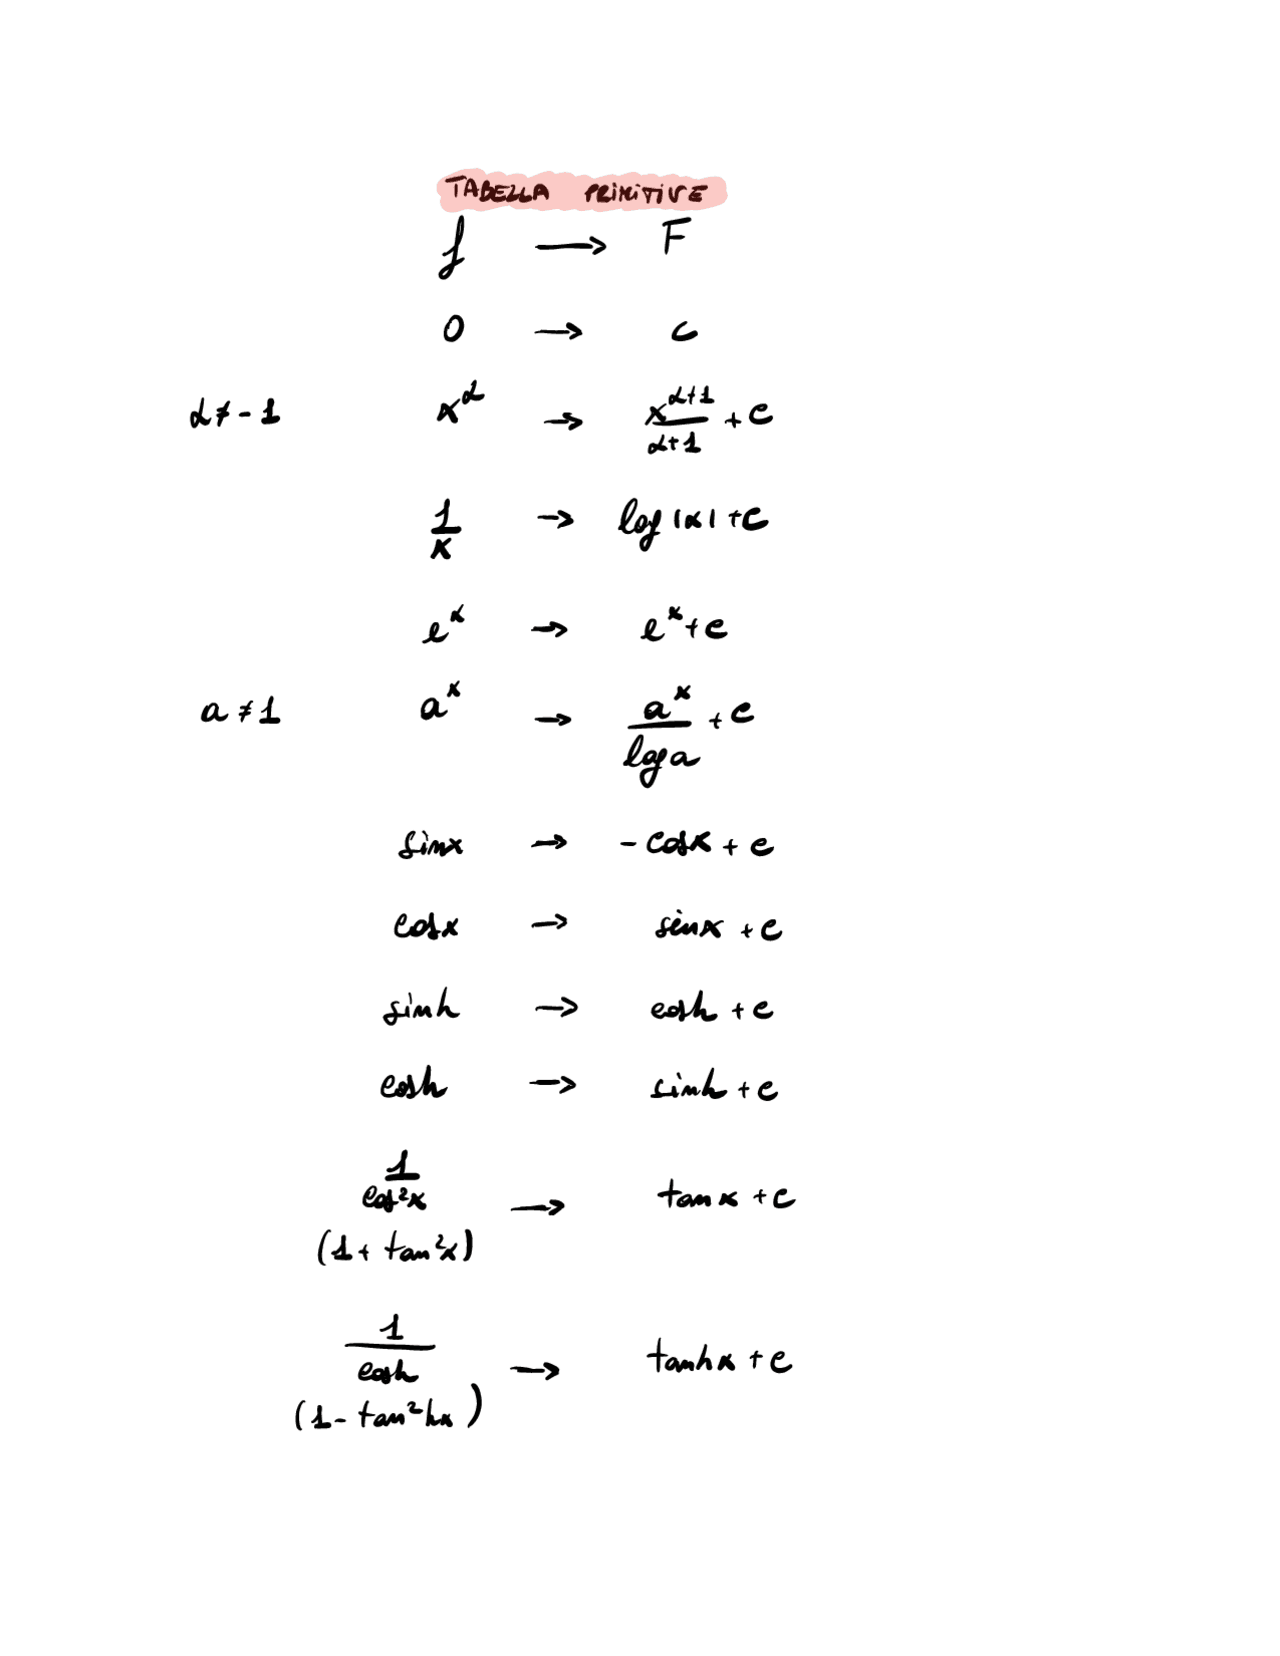 TABELLA PRIMITIVE
f → F
0 → c
α ≠ -1 x^α → x^(α+1)/(α+1) + c
1/x → log |x| + c
e^x → e^x + c
a ≠ 1 a^x → a^x/log a + c
sinx → - cosx + c
cosx → sinx + c
sinh → cosh + c
cosh → sinh + c
1/cos²x (1 + tan²x) → tanx + c
1/cosh (1 - tan²hx) → tanhx + c